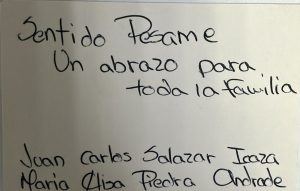 Sentido Pesame
Un abrazo para
toda la familia
Juan Carlos Salazar Icaza
María Elisa Piedra Andrade